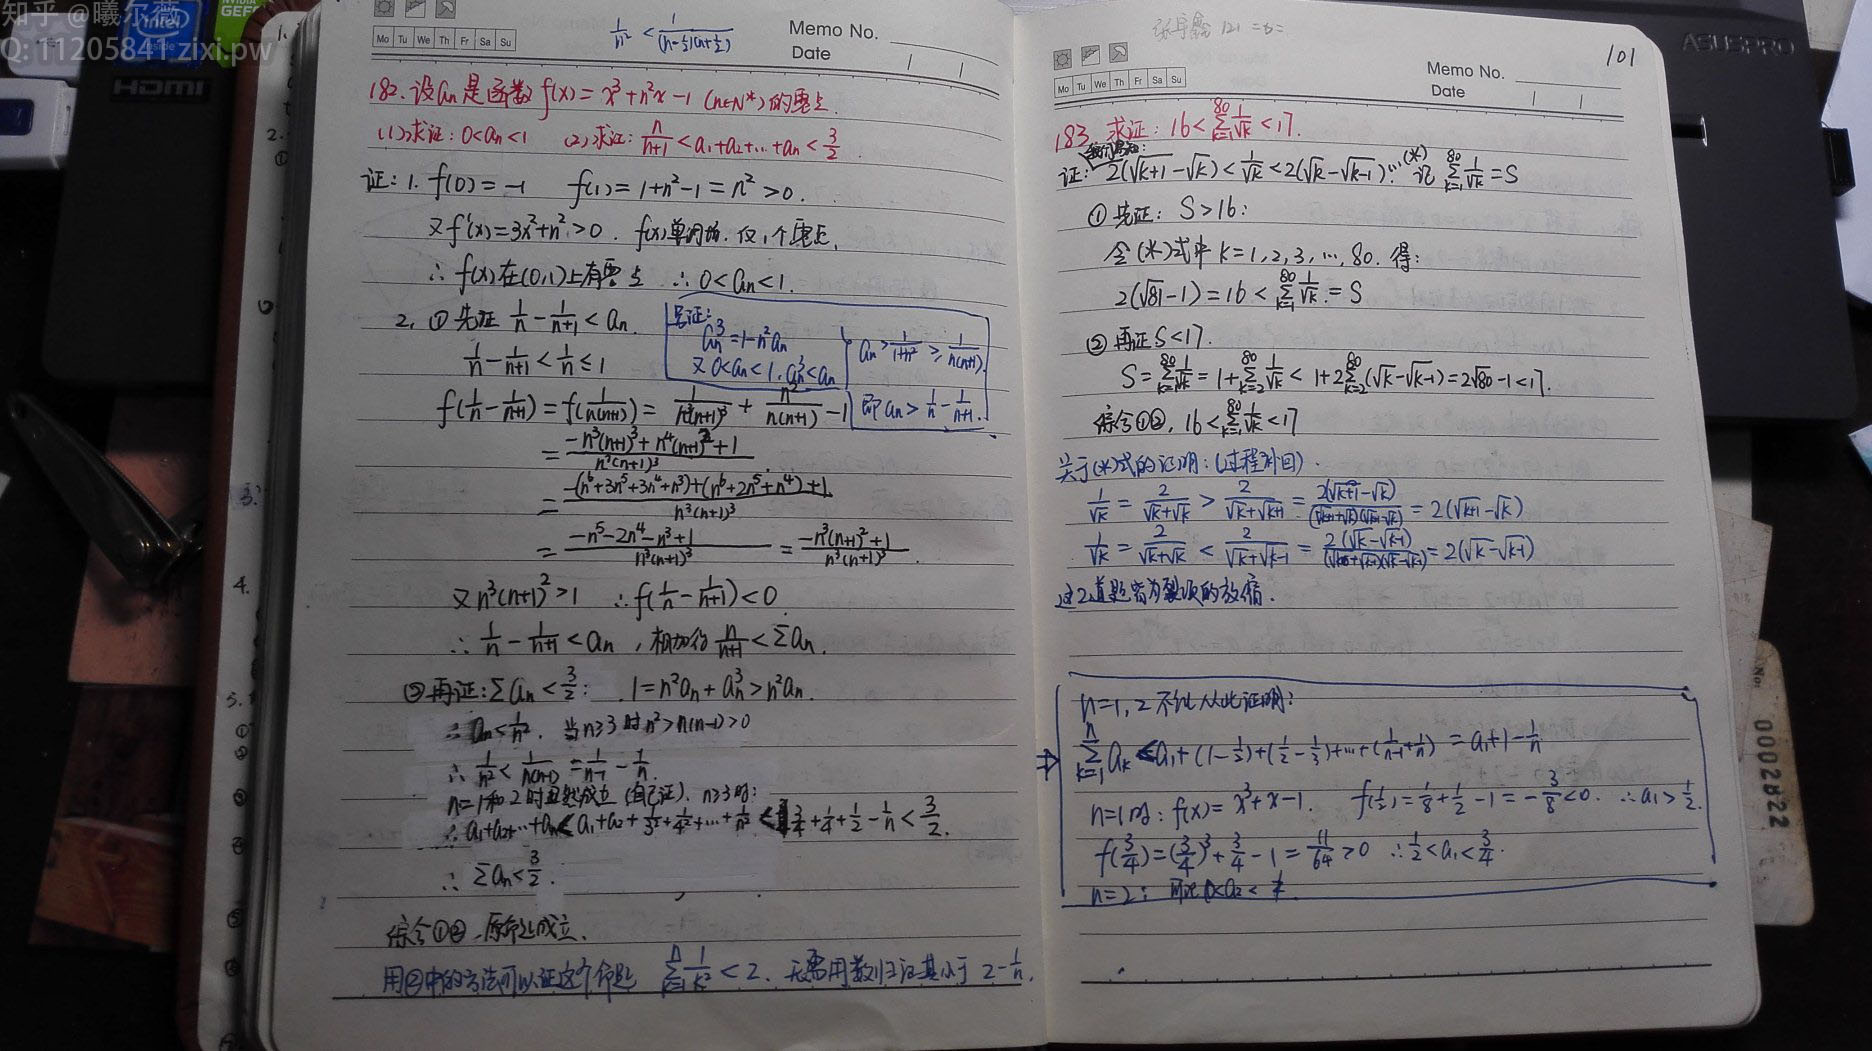 知乎 @曦尔薇
Q: 11205841 zixi.pw
intel
inside
HDMI
NVIDIA
GEF
Mo Tu We Th Fr Sa Su
1/n² < 1/((n-½)(n+½))
Memo No.
Date
182. 设aₙ是函数 f(x)=x³+n²x-1 (n∈N*)的零点.
(1)求证: 0<aₙ<1 (2)求证: n/(n+1) < a₁+a₂+…+aₙ < 3/2
证: 1. f(0)=-1 f(1)=1+n²-1=n²>0.
又f'(x)=3x²+n²>0. f(x)单调增. 仅1个零点.
∴ f(x)在(0,1)上有零点 ∴ 0<aₙ<1.
2. ①先证 1/n - 1/(n+1) < aₙ.
1/n - 1/(n+1) < 1/n ≤ 1
另证:
aₙ³=1-n²aₙ
又0<aₙ<1. aₙ³<aₙ
aₙ > 1/(1+n²) ≥ 1/(n(n+1))
即aₙ > 1/n - 1/(n+1).
f(1/n - 1/(n+1)) = f(1/(n(n+1))) = 1/(n³(n+1)³) + n²/(n(n+1)) - 1
= (-n³(n+1)³+n⁴(n+1)²+1)/(n³(n+1)³)
= (-(n⁶+3n⁵+3n⁴+n³)+(n⁶+2n⁵+n⁴)+1)/(n³(n+1)³)
= (-n⁵-2n⁴-n³+1)/(n³(n+1)³) = (-n³(n+1)²+1)/(n³(n+1)³).
又n³(n+1)²>1 ∴ f(1/n - 1/(n+1))<0
∴ 1/n - 1/(n+1) < aₙ, 相加得 n/(n+1) < Σaₙ.
②再证: Σaₙ < 3/2: 1=n²aₙ+aₙ³>n²aₙ.
∴ aₙ<1/n². 当n≥3时n²>n(n-1)>0
∴ 1/n² < 1/(n(n-1)) = 1/(n-1) - 1/n.
n=1和2时显然成立 (自己证). n≥3时:
∴ a₁+a₂+…+aₙ < a₁+a₂+1/3²+1/4²+…+1/n² < 3/4+1/4+1/2-1/n < 3/2.
∴ Σaₙ<3/2.
综合①②, 原命题成立.
用②中的方法可以证这个命题 Σₖ₌₁ⁿ 1/k² < 2. 无需用数归证其小于 2-1/n.
101
ASUSPRO
Mo Tu We Th Fr Sa Su
Memo No.
Date
183. 求证: 16 < Σₖ₌₁⁸⁰ 1/√k < 17.
证: 2(√(k+1)-√k) < 1/√k < 2(√k-√(k-1)) …(*) 记 Σₖ₌₁⁸⁰ 1/√k = S
①先证: S>16:
令(*)式中 k=1, 2, 3, …, 80. 得:
2(√81-1)=16 < Σₖ₌₁⁸⁰ 1/√k = S
②再证S<17.
S = Σₖ₌₁⁸⁰ 1/√k = 1+Σₖ₌₂⁸⁰ 1/√k < 1+2Σₖ₌₂⁸⁰(√k-√(k-1)) = 2√80-1<17.
综合①②, 16 < Σₖ₌₁⁸⁰ 1/√k < 17
关于(*)式的证明: (过程对回).
1/√k = 2/(√k+√k) > 2/(√k+√(k+1)) = 2(√(k+1)-√k)/((√(k+1)+√k)(√(k+1)-√k)) = 2(√(k+1)-√k)
1/√k = 2/(√k+√k) < 2/(√k+√(k-1)) = 2(√k-√(k-1))/((√k+√(k-1))(√k-√(k-1))) = 2(√k-√(k-1))
这2道题皆为裂项的放缩.
n=1, 2 不能从此证明:
⇒ Σₖ₌₁ⁿ aₖ < a₁+(1-1/2)+(1/2-1/3)+…+(1/(n-1)+1/n) = a₁+1-1/n
n=1时: f(x)=x³+x-1. f(1/2)=1/8+1/2-1=-3/8<0. ∴ a₁>1/2.
f(3/4)=(3/4)³+3/4-1=11/64>0 ∴ 1/2<a₁<3/4.
n=2: 0<a₂<
No:
0002822